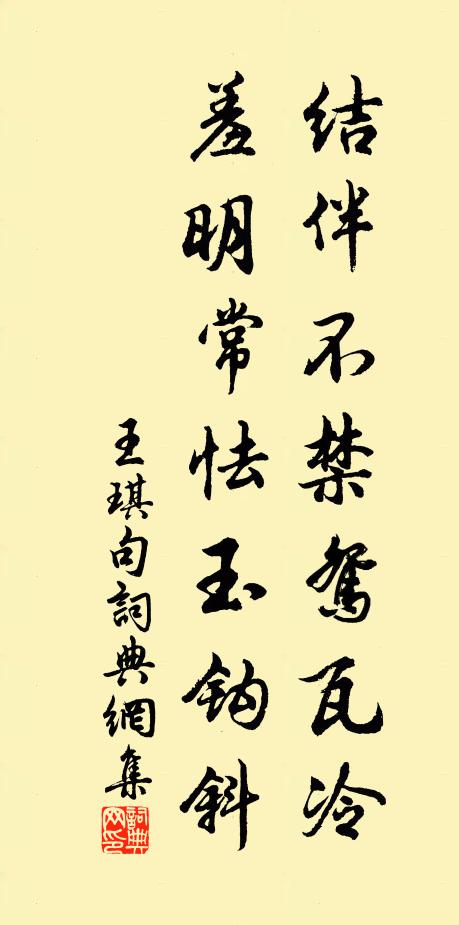 结伴不禁鸳瓦冷
羞明常怯玉钩斜
王琪句詞典網集
詞典网印